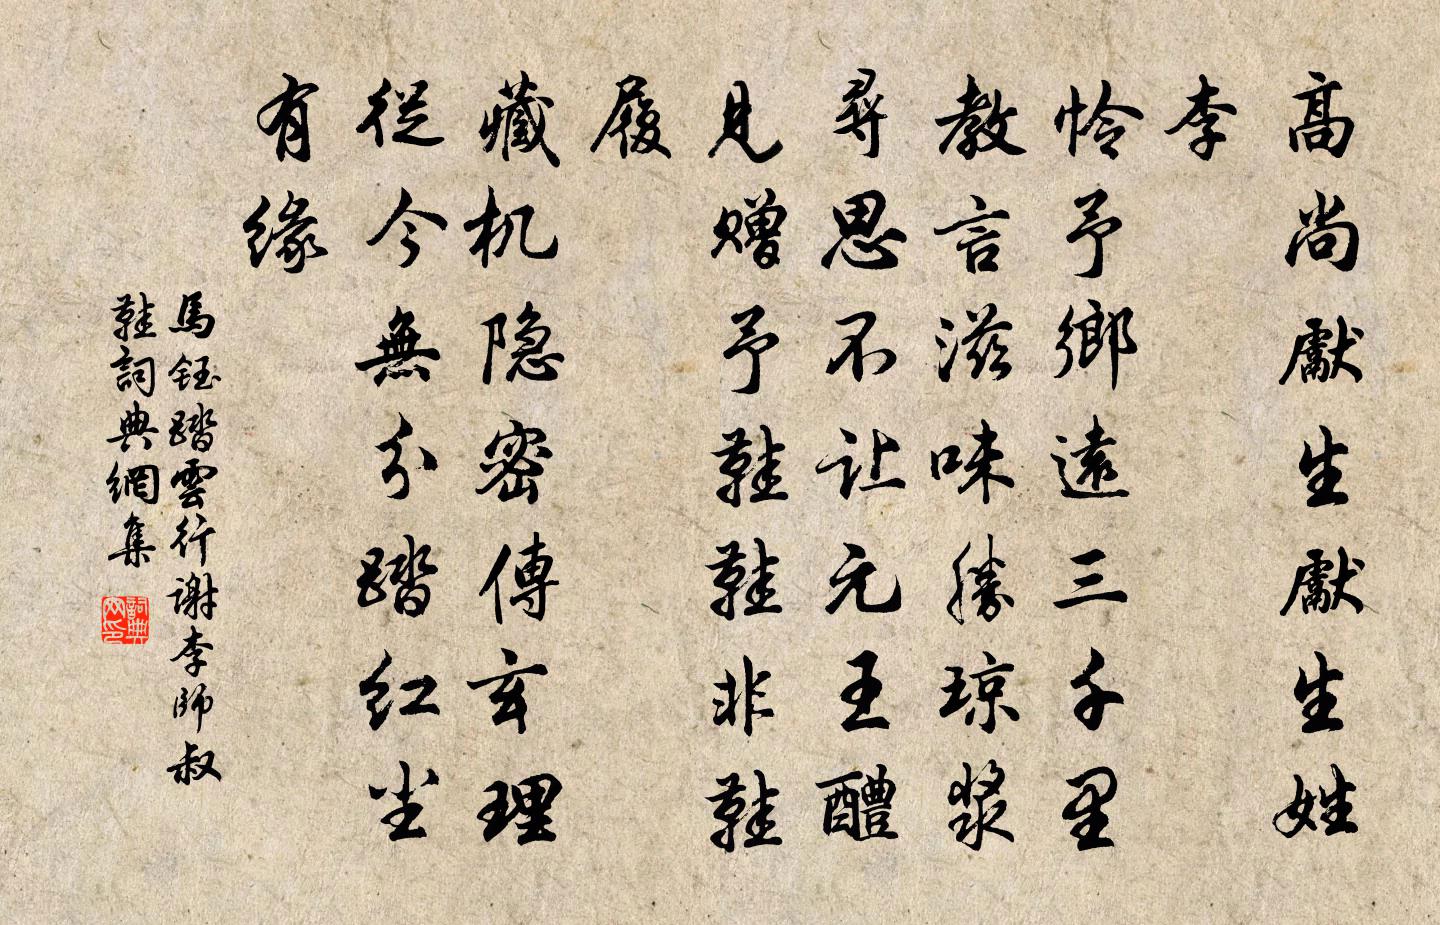 髙尚獻生獻生姓
李
怜予鄉遠三千里
教言滋味勝琼浆
尋思不让元王醴
見赠予鞋鞋非鞋
履
藏机隐密傳玄理
從今無分踏红尘
有缘
馬鈺踏雲行谢李師叔
鞋詞典網集
詞典
网印